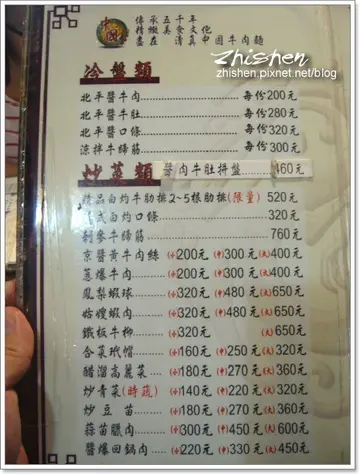 傳承五千年
精緻美食文化
盡在 清真中國牛肉麵
Zhishen
zhishen.pixnet.net/blog
冷盤類
北平醬牛肉 每份200元
北平醬牛肚 每份280元
北平醬口條 每份320元
涼拌牛蹄筋 每份300元
炒菜類 醬肉牛肚拼盤 460元
精品白灼牛肋排2~5根肋排(限量) 520元
式白灼口條 320元
牛蹄筋 760元
京醬黃牛肉絲 (小)200元 (中)300元 (大)400元
蔥爆牛肉 (小)200元 (中)300元 (大)400元
鳳梨蝦球 (小)320元 (中)480元 (大)650元
姑嫂蝦肉 (小)320元 (中)480元 (大)650元
鐵板牛柳 (小)320元 (大)650元
合菜玳帽 (小)160元 (中)250元 (大)320元
醋溜高麗菜 (小)180元 (中)270元 (大)360元
炒青菜(時蔬) (小)140元 (中)220元 (大)320元
炒豆苗 (小)180元 (中)270元 (大)360元
蒜苗臘肉 (小)300元 (中)450元 (大)600元
醬爆回鍋肉 (小)220元 (中)330元 (大)450元